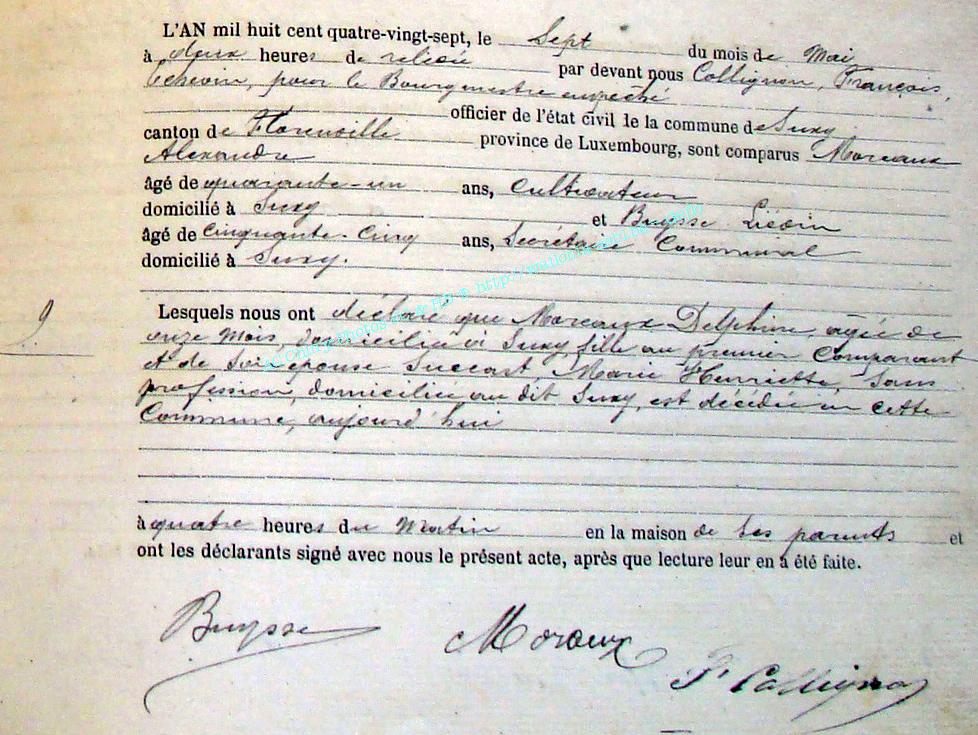 L'AN mil huit cent quatre-vingt-sept, le Sept du mois de Mai
à deux heures de relevée par devant nous Collignon, François,
Echevin, pour le Bourgmestre empêché
officier de l'état civil de la commune de Suxy
canton de Florenville province de Luxembourg, sont comparus Moreaux
Alexandre
âgé de quarante-un ans, Cultivateur
domicilié à Suxy et Buysse Liévin
âgé de Cinquante-Cinq ans, Secrétaire Communal
domicilié à Suxy.
9.
Lesquels nous ont déclaré que Moreaux Delphine, agée de
onze mois, domiciliée à Suxy, fille du premier Comparant
et de Son épouse Marie Henriette, Sans
profession, domiciliée au dit Suxy, est décédée en cette
Commune, aujourd'hui
à quatre heures du matin en la maison de Ses parents et
ont les déclarants signé avec nous le présent acte, après que lecture leur en a été faite.
Buysse Moreaux
F. Collignon